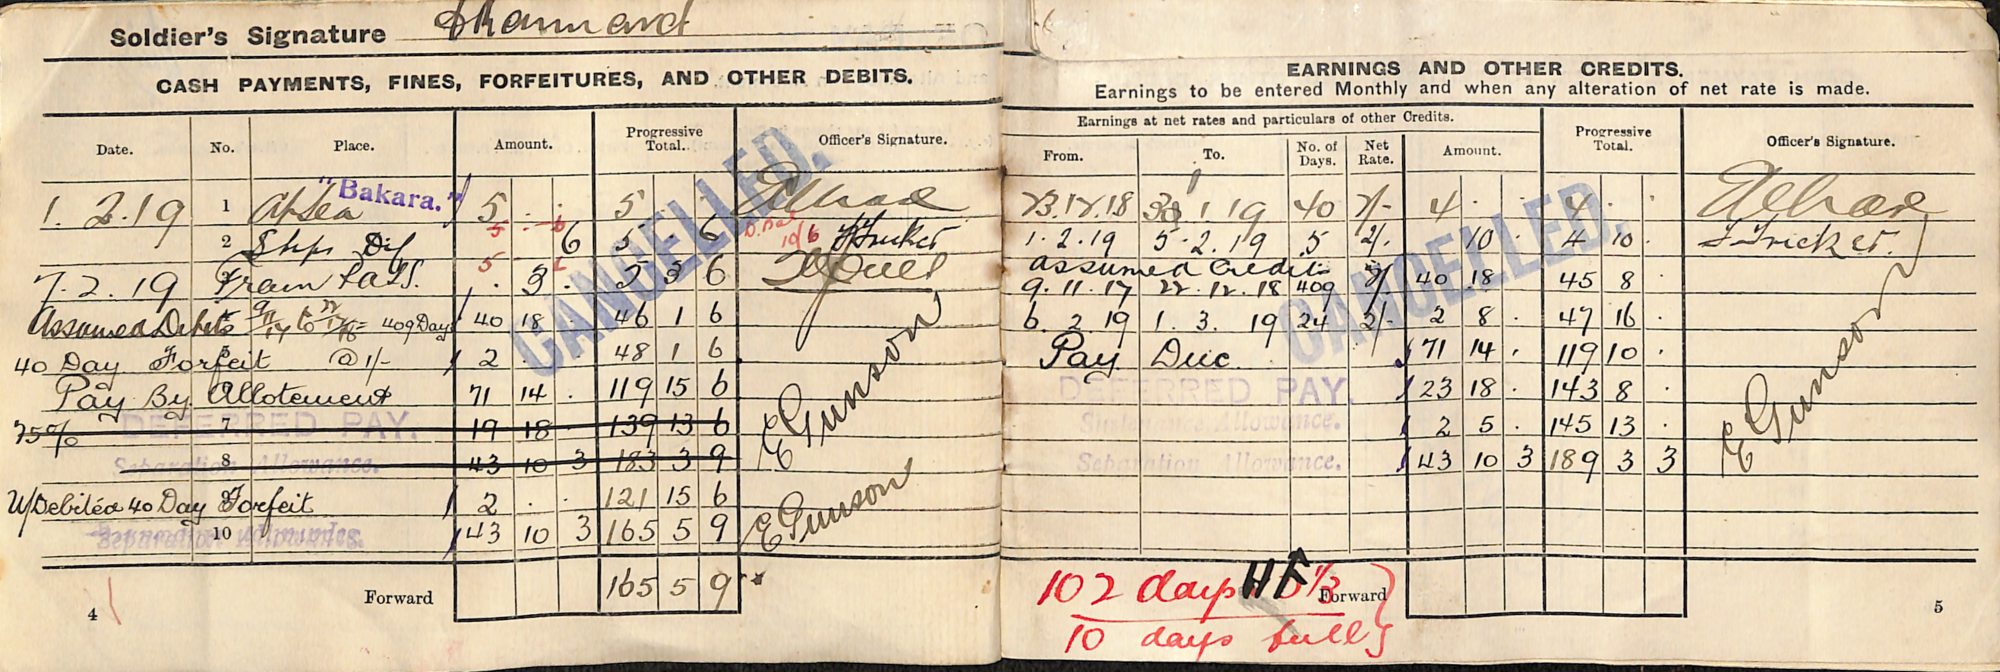 Soldier's Signature
CASH PAYMENTS, FINES, FORFEITURES, AND OTHER DEBITS.
Date. No. Place. Amount. Progressive Total. Officer's Signature.
1.2.19 1 At Sea "Bakara." 5 . . 5 . .
2 Ships Dif 6 5 . 6
5 . 6
10/6
7.2.19 Train Pass. . 3 . 5 3 6
Assumed Debits 9/11/17 to 22/12/18 = 409 Days 40 18 . 46 1 6
40 Day Forfeit @ 1/- 2 . . 48 1 6
Pay By Allotement 71 14 . 119 15 6
75% 7 DEFERRED PAY. 19 18 . 139 13 6
8 Separation Allowance. 43 10 3 183 3 9
W/Debited 40 Day Forfeit 2 . . 121 15 6
10 Separation Allowance. 43 10 3 165 5 9
E Gunson
E Gunson
Forward 165 5 9
4
CANCELLED.
EARNINGS AND OTHER CREDITS.
Earnings to be entered Monthly and when any alteration of net rate is made.
Earnings at net rates and particulars of other Credits. Progressive Total. Officer's Signature.
From. To. No. of Days. Net Rate. Amount.
23.12.18 1 19 40 2/- 4 . . 4 . .
1.2.19 5.2.19 5 2/- 10 . 4 10 . F Tricker.
Assumed Credit
9.11.17 22.12.18 409 2/- 40 18 . 45 8 .
6.2.19 1.3.19 24 2/- 2 8 . 47 16 .
Pay Due 71 14 . 119 10 .
DEFERRED PAY. 23 18 . 143 8 .
Sustenance Allowance. 2 5 . 145 13 .
Separation Allowance. 43 10 3 189 3 3
E Gunson
CANCELLED.
102 days HF Forward
10 days full
5